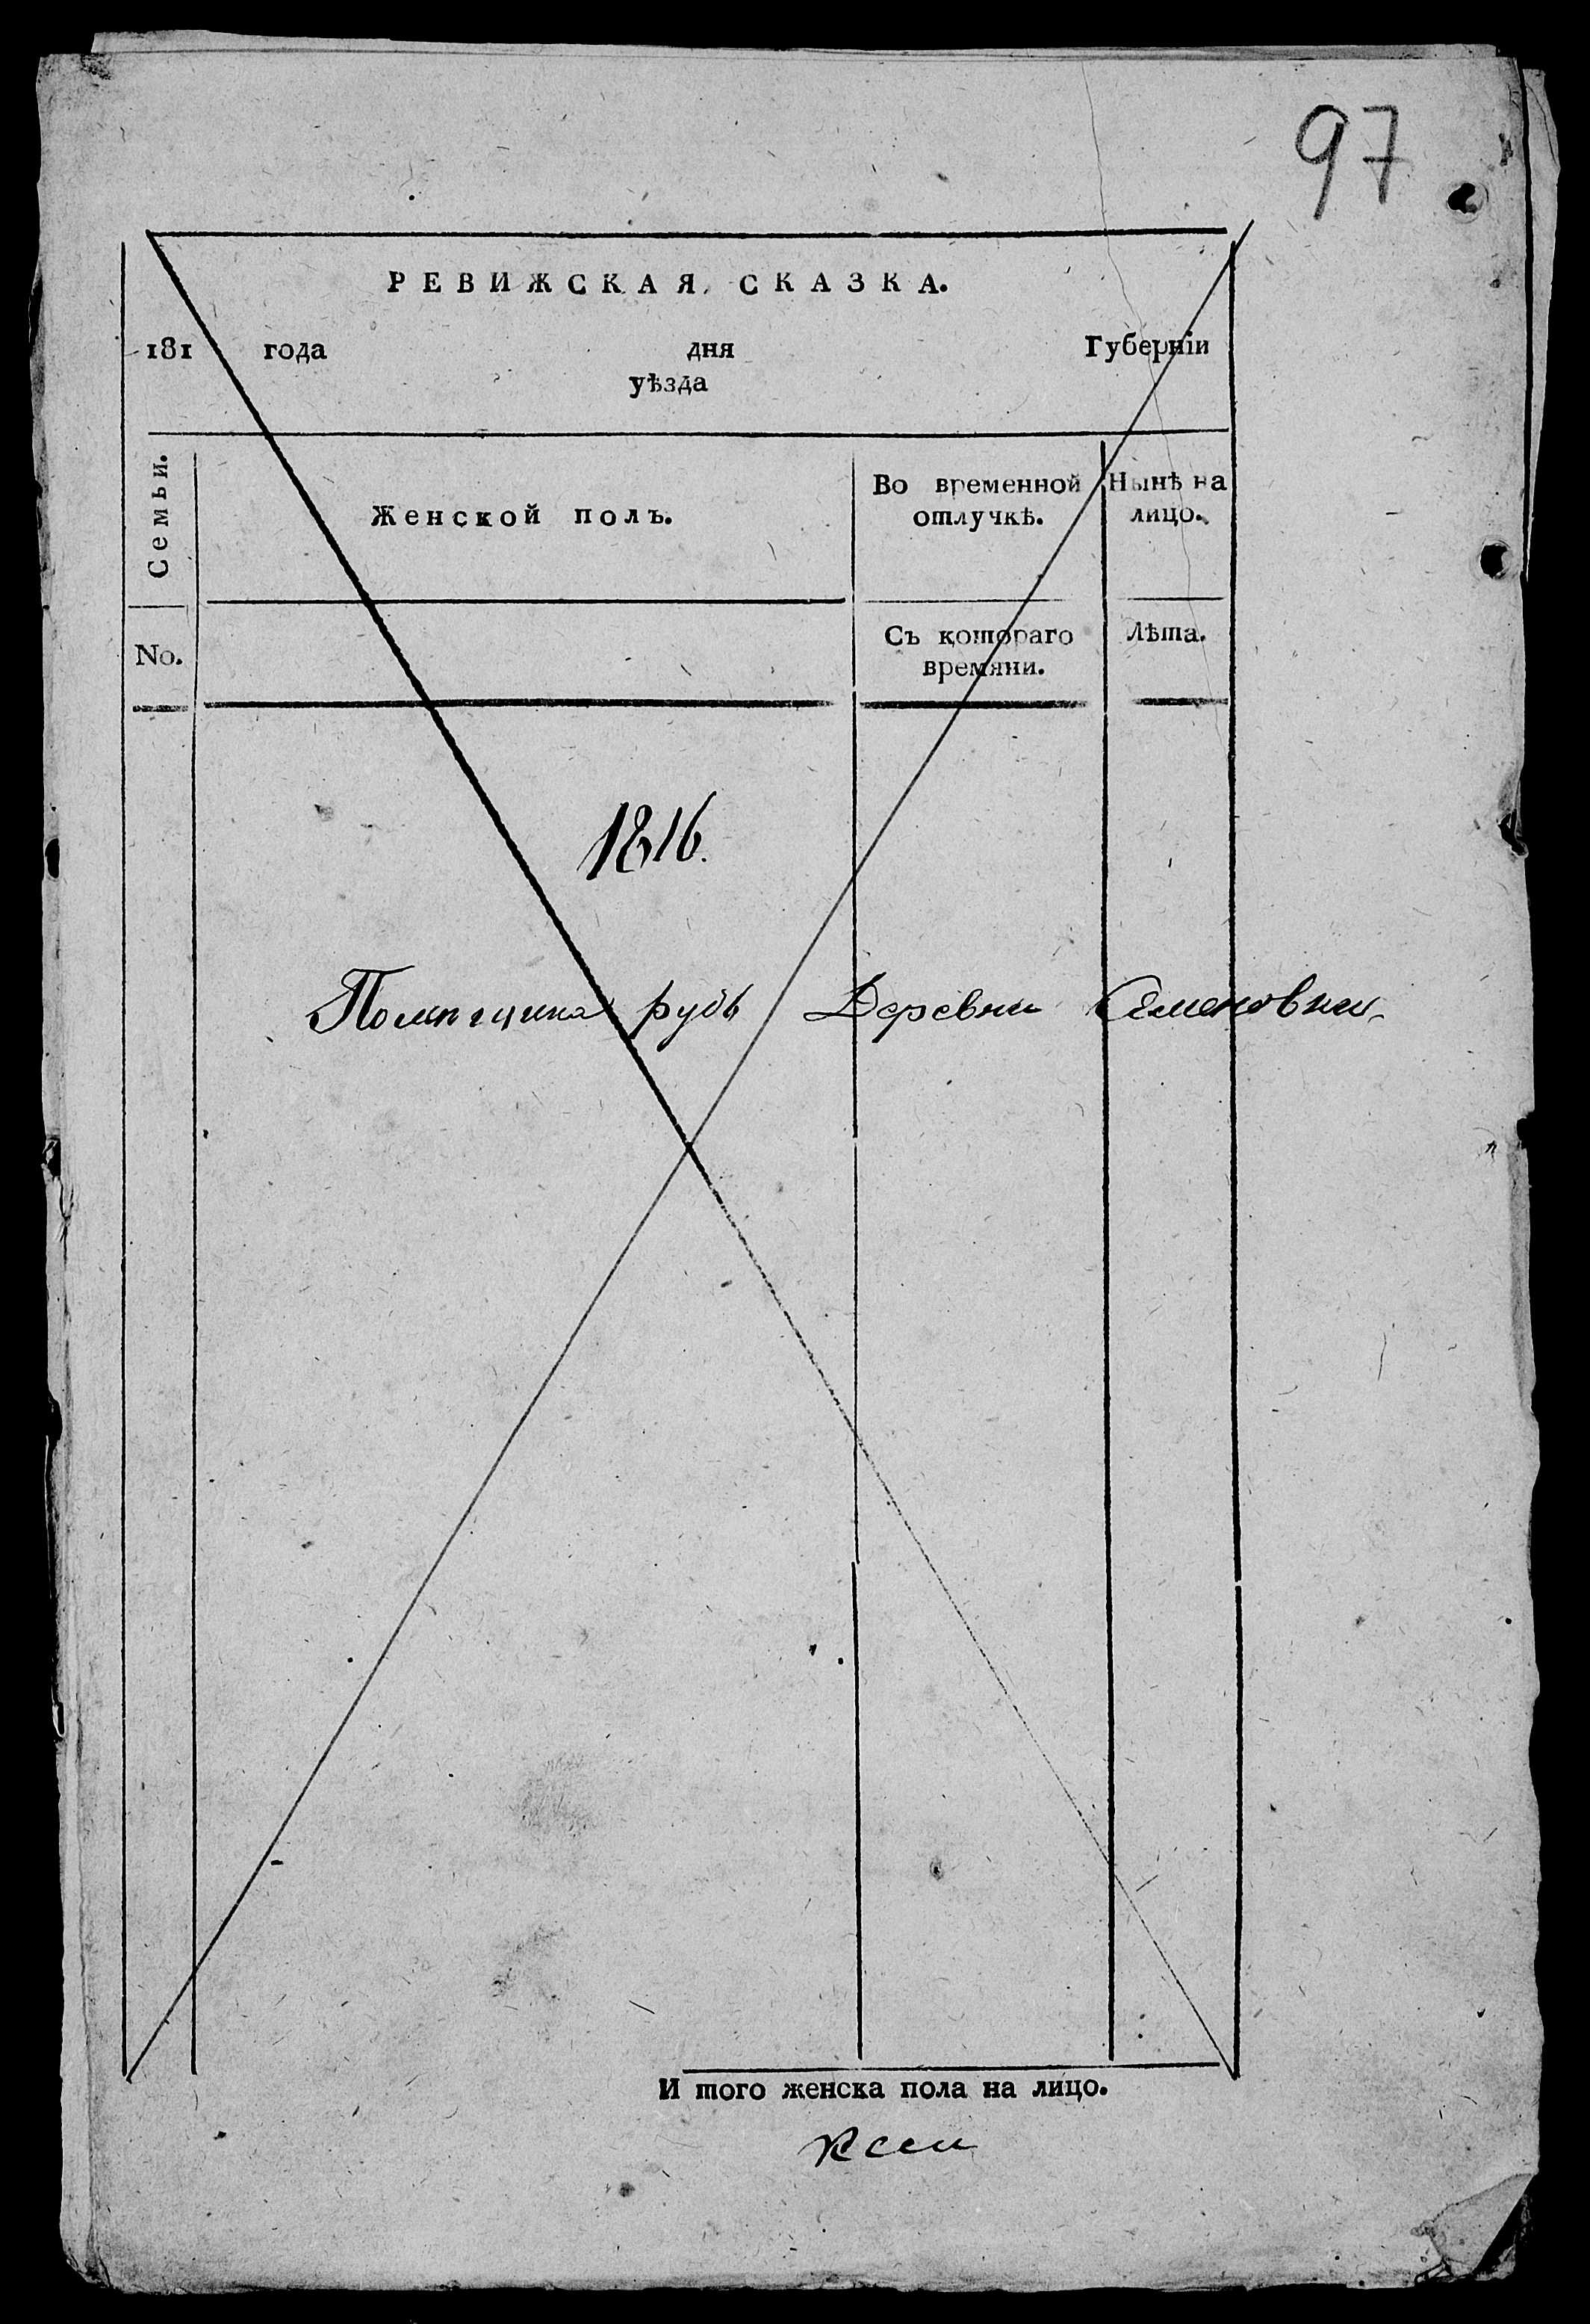 97
РЕВИЖСКАЯ СКАЗКА.
181 года дня Губерніи
уѣзда
Семьи.
Женской полъ.
Во временной отлучкѣ.
Нынѣ на лицо.
No.
Съ котораго времяни.
Лѣта.
1816.
Помѣщика Деревни Семеновки
И того женска пола на лицо.